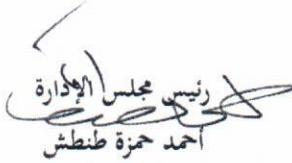 رئيس مجلس الإدارة
أحمد حمزة طنطش